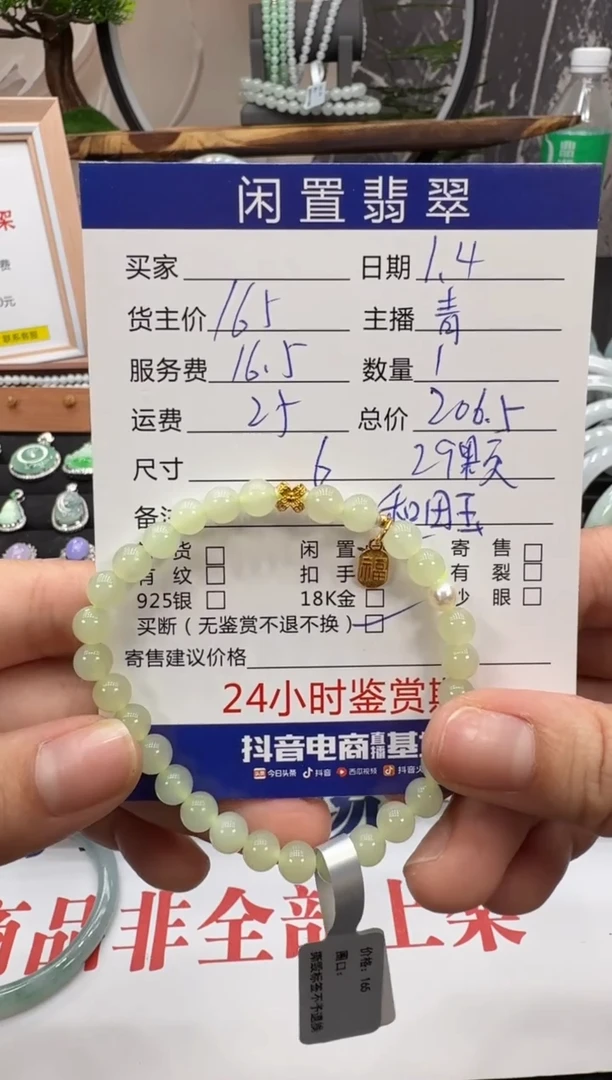 闲置翡翠
买家 日期 1.4
货主价 165 主播 青
服务费 16.5 数量 1
运费 25 总价 206.5
尺寸 6 29颗
和田玉
货 □ 闲置 寄售 □
纹 □ 扣手 有裂 □
925银 □ 18K金 □ 眼 □
买断（无鉴赏不退不换） □
寄售建议价格
24小时鉴赏期
抖音电商直播基
今日头条 抖音 西瓜视频 抖音火
福
价格: 165
圈口:
撕毁标签不予退换
商品非全部上架
架
费
0元
联系客服